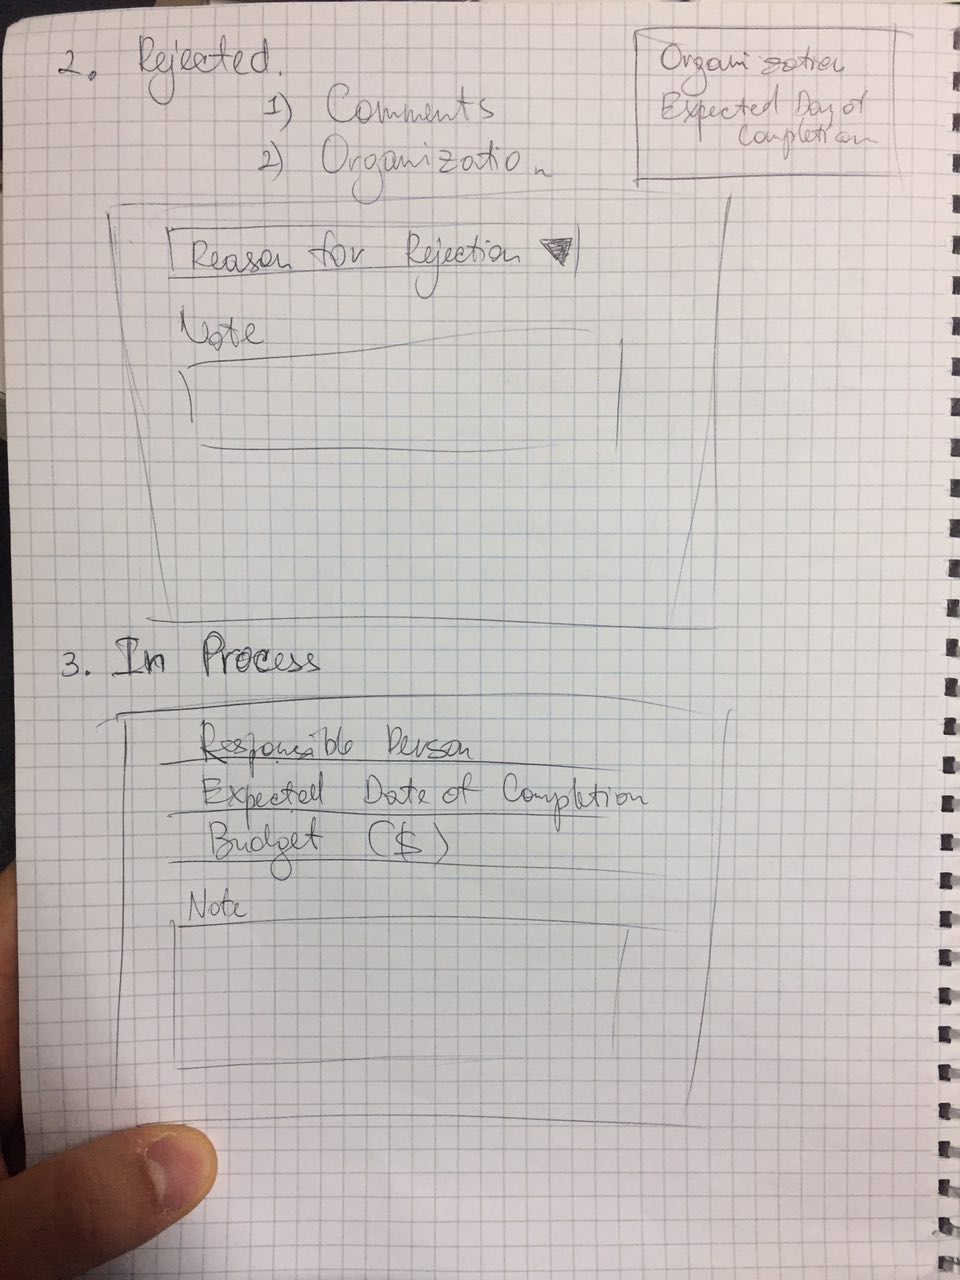 2. Rejected.
1) Comments
2) Organization
Organization
Expected Day of
Completion
Reason for Rejection
Note
3. In Process
Responsible Person
Expected Date of Completion
Budget ($)
Note